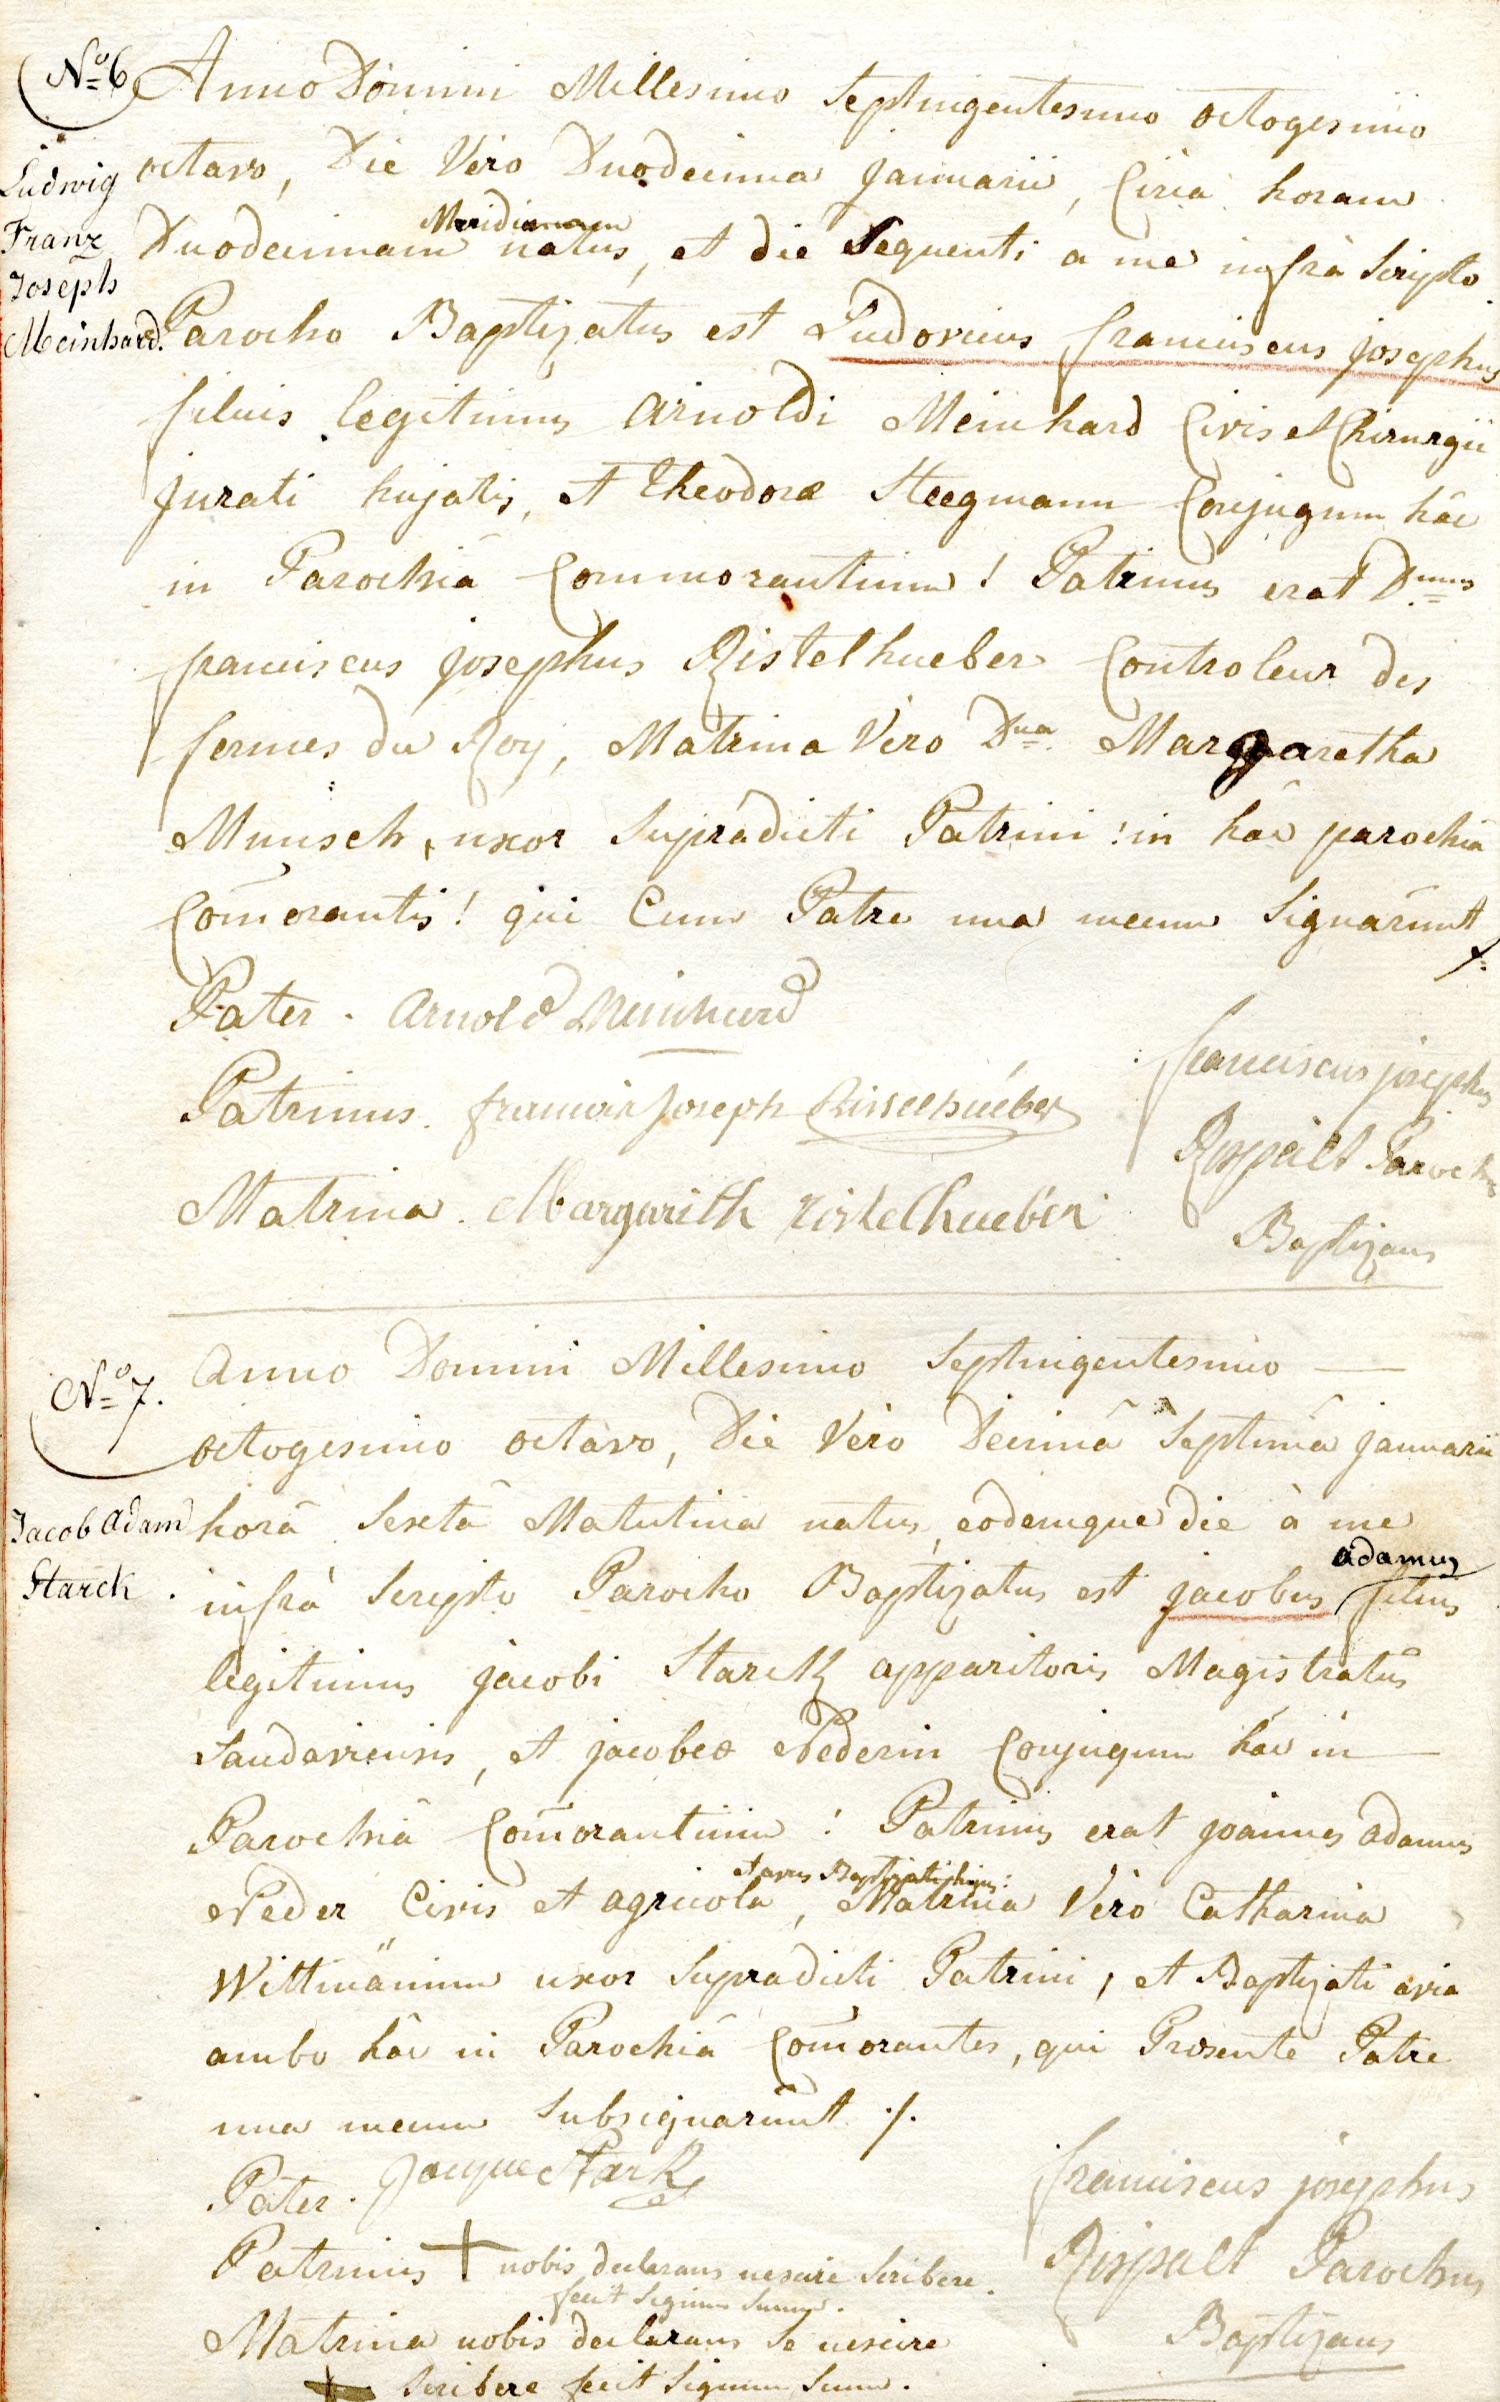 Nº 6
Anno Domini Millesimo Septingentesimo octogesimo
Ludwig
Franz
Joseph
Meinhard.
octavo, Die Vero Duodecima januarii, Circa horam
Meridianam
Duodecimam natus, et die Sequenti a me infrà Scripto
Parocho Baptizatus est Ludovicus franciscus josephus
filius legitimus arnoldi Meinhard Civis et Chirurgii
jurati hujatis, et Theodoræ Steegmann Conjugum hâc
in Parochiâ Commorantium! Patrinus erat Dnus
franciscus josephus Ristelhueber Controleur des
fermes du Roy, Matrina Vero Dna Margaretha
Munsch, uxor Supradicti Patrini! in hâc parochiâ
Com̄orantis! qui Cum Patre una mecum Signarûnt
Pater. arnold Meinhard
Patrinus. francois joseph Ristelhueber
Matrina. Margarith ristelhueberin
franciscus josephus
Rispalt Parochus
Baptizans
Nº 7.
Jacob Adam
Starck.
Anno Domini Millesimo Septingentesimo
octogesimo octavo, Die Vero Decimâ Septimâ januarii
horâ Sextâ Matutina natus, eodemque die à me
adamus
infrà Scripto Parocho Baptizatus est jacobus filius
legitimus jacobi Starck apparitoris Magistratûs
Landaviensis, et jacobeæ Nederin Conjugum hâc in
Parochiâ Com̄orantium! Patrinus erat joannes adamus
et avus Baptizati hujus:
Neder Civis et agricola, Matrina Vero Catharina
Wittmännin uxor Supradicti Patrini, et Baptizati avia
ambo hâc in Parochiâ Com̄orantes, qui Præsente Patre
una mecum Subsignarûnt ./.
Pater. jacque Stark
Patrinus + nobis declarans nescire Scribere.
fecit Signum Suum.
Matrina nobis declarans Se nescire
+ Scribere fecit Signum Suum.
franciscus josephus
Rispalt Parochus
Baptizans